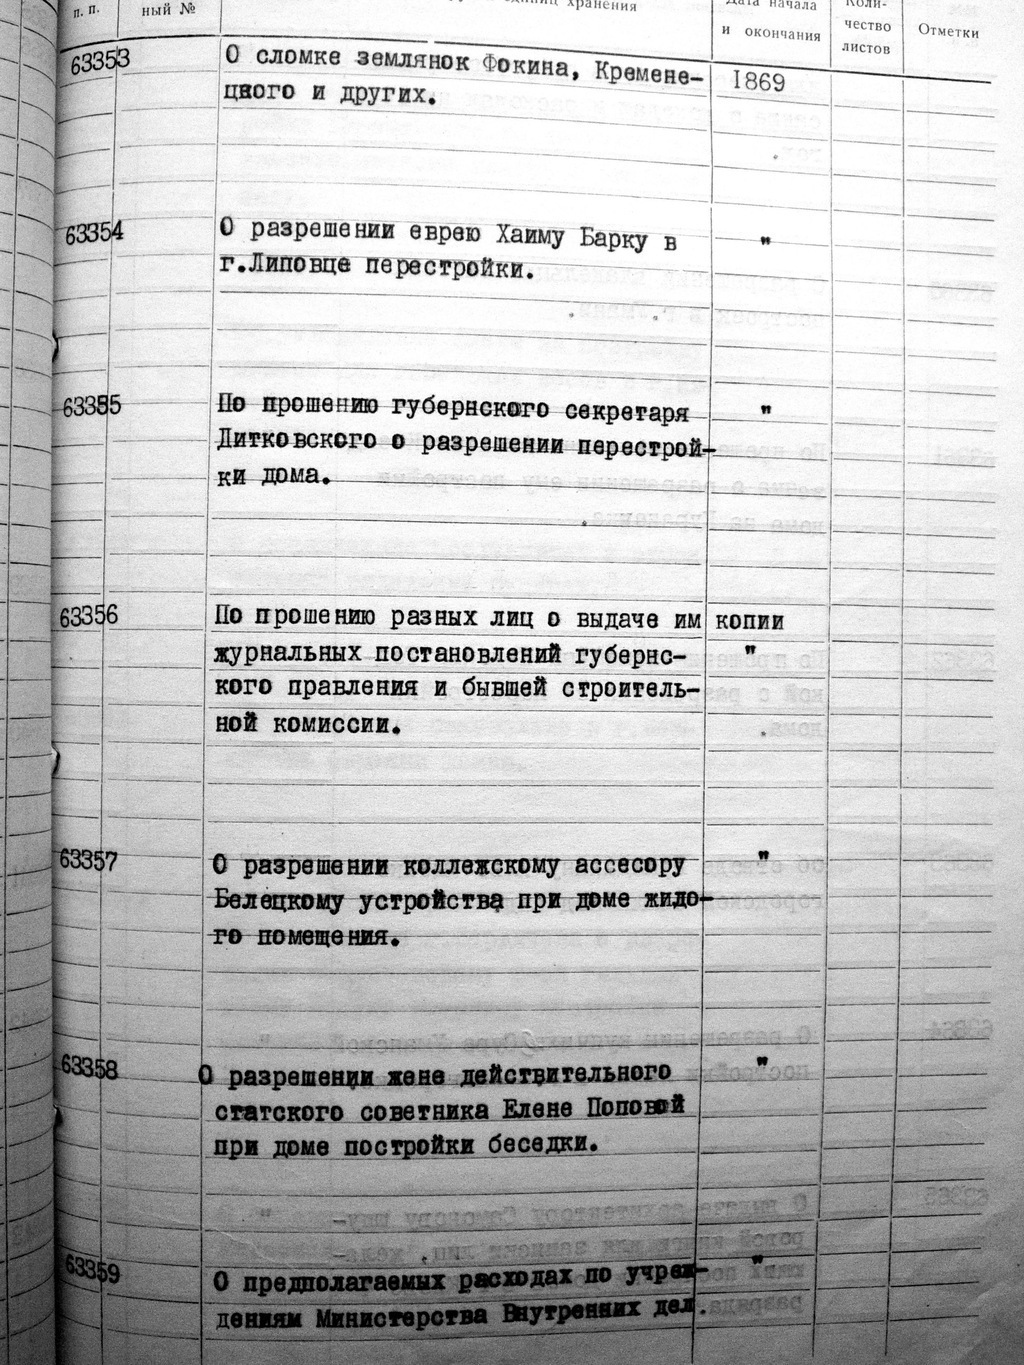 п. п.
ный №
единиц хранения
Дата начала
и окончания
Коли-
чество
листов
Отметки
63353
О сломке землянок Фокина, Кремене-
цкого и других.
1869
63354
О разрешении еврею Хаиму Барку в
г.Липовце перестройки.
"
63355
По прошению губернского секретаря
Литковского о разрешении перестрой-
ки дома.
"
63356
По прошению разных лиц о выдаче им копии
журнальных постановлений губернс-
кого правления и бывшей строитель-
ной комиссии.
"
63357
О разрешении коллежскому ассесору
Белецкому устройства при доме жило-
го помещения.
"
63358
О разрешении жене действительного
статского советника Елене Поповой
при доме постройки беседки.
"
63359
О предполагаемых расходах по учреж-
дениям Министерства Внутренних дел.
"